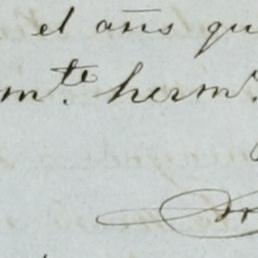 el año qu
mte. herm.